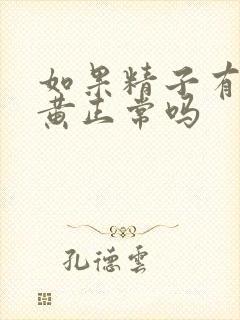 如果精子有
黄正常吗
孔德雲